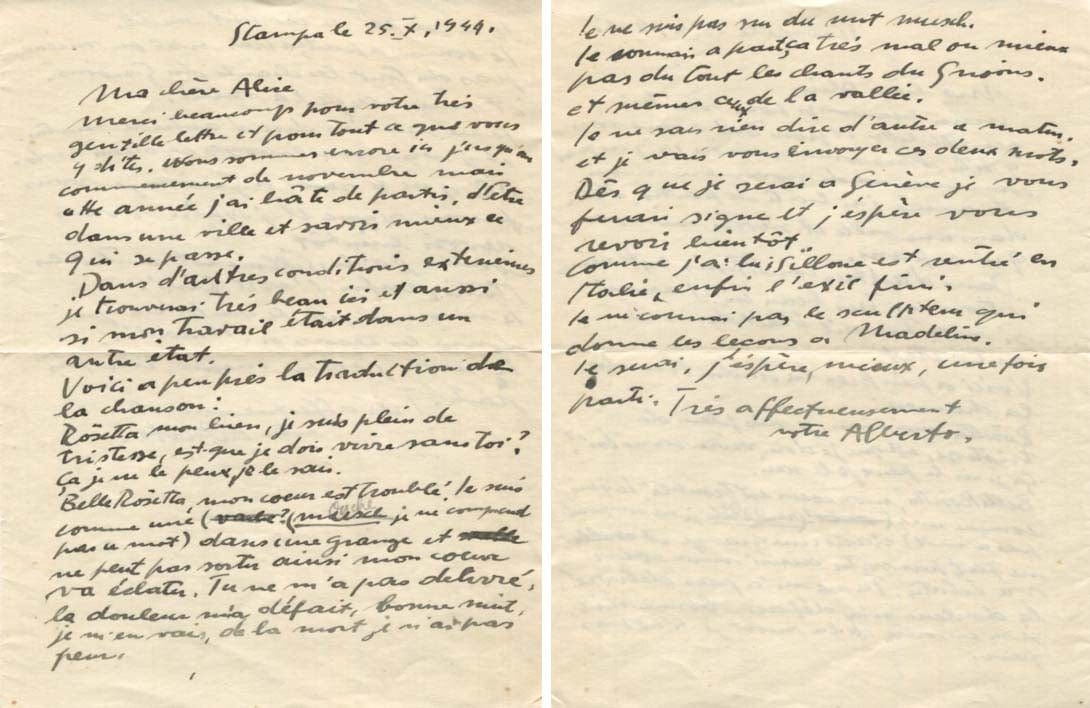 Stampa le 25. X, 1944.
Ma chère Alice
Merci beaucoup pour votre très
gentille lettre et pour tout ce que vous
y dites. Nous sommes encore ici jusqu'au
commencement de novembre mais
cette année j'ai hâte de partir, d'être
dans une ville et savoir mieux ce
qui se passe.
Dans d'autres conditions extérieures
je trouverai très beau ici et aussi
si mon travail était dans un
autre état.
Voici a peu près la traduction de
la chanson:
Rösetta mon bien, je suis plein de
tristesse, est-que je dois vivre sans toi?
Ça je ne le peux, je le sais.
Belle Rösetta, mon coeur est troublé. Je suis
comme une (vache? (muesch je ne comprend
pas ce mot) dans une grange et
ne peut pas sortir ainsi mon coeur
va éclater. Tu ne m'a pas delivré,
la douleur m'a défait, bonne nuit,
je m'en vais, de la mort je n'ai pas
peur.
Je ne suis pas sur du mot muesch.
Je connais a part ça très mal ou mieux
pas du tout les chants du Grisons.
et mêmes ceux de la vallée.
Je ne sais rien dire d'autre ce matin,
et je vais vous envoyer ces deux mots.
Dès que je serai a Genève je vous
ferai signe et j'éspère vous
revoir bientôt.
Comme j'ai lu; Sillone est rentré en
Italie, enfin l'exil fini.
Je ne connai pas le sculpteur qui
donne les lecons a Madelin.
Je serai, j'éspère, mieux, une fois
parti. Très affectueusement
votre Alberto.